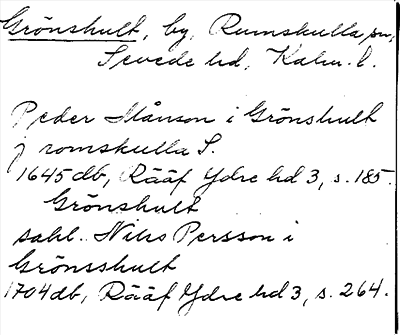 Grönshult, by, Rumskulla sn,
Sevede hd, Kalm. l.
Peder Månson i Grönshult
j romskulla S.
1645 db, Rääf Ydre hd 3, s. 185.
Grönshult
sahl. Nils Persson i
Grönsshult
1704 db, Rääf Ydre hd 3, s. 264.